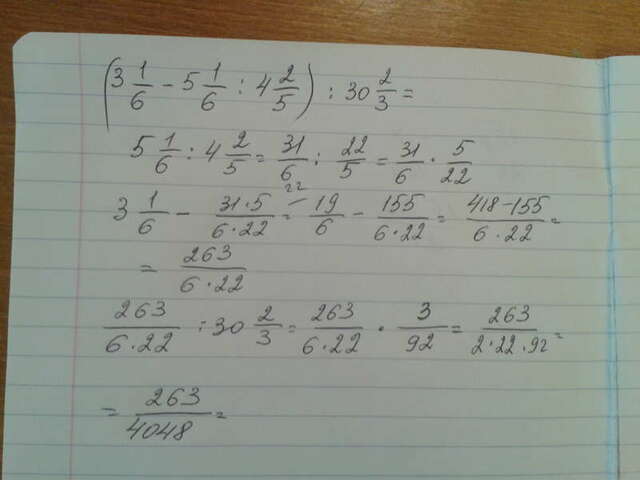 (3 1/6 - 5 1/6 : 4 2/5) : 30 2/3 =
5 1/6 : 4 2/5 = 31/6 : 22/5 = 31/6 · 5/22
3 1/6 - 31·5/6·22 = 22 19/6 - 155/6·22 = 418-155/6·22 =
= 263/6·22
263/6·22 : 30 2/3 = 263/6·22 · 3/92 = 263/2·22·92 =
= 263/4048 =